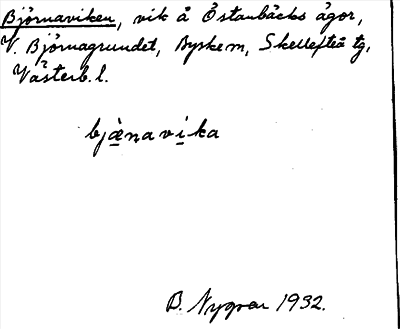 Björnaviken, vik å Östanbäcks ägor,
V. Björnagrundet, Byske m, Skellefteå tg,
Västerb. l.
bjæ̀n̥a vi̱ka
B. Nygren 1932.